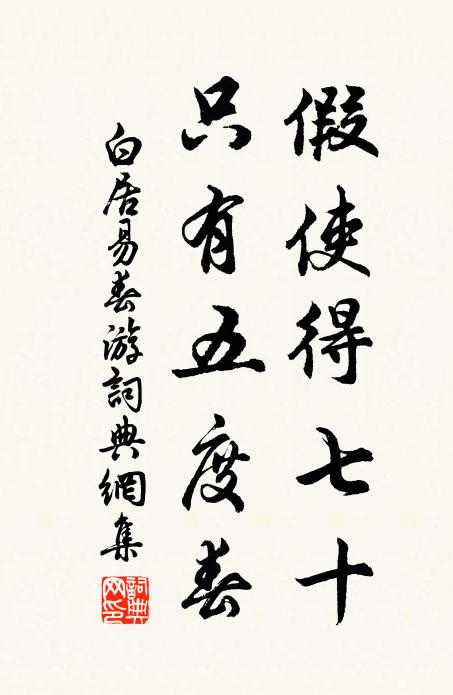 假使得七十
只有五度春
白居易春游詞典網集
詞典网印